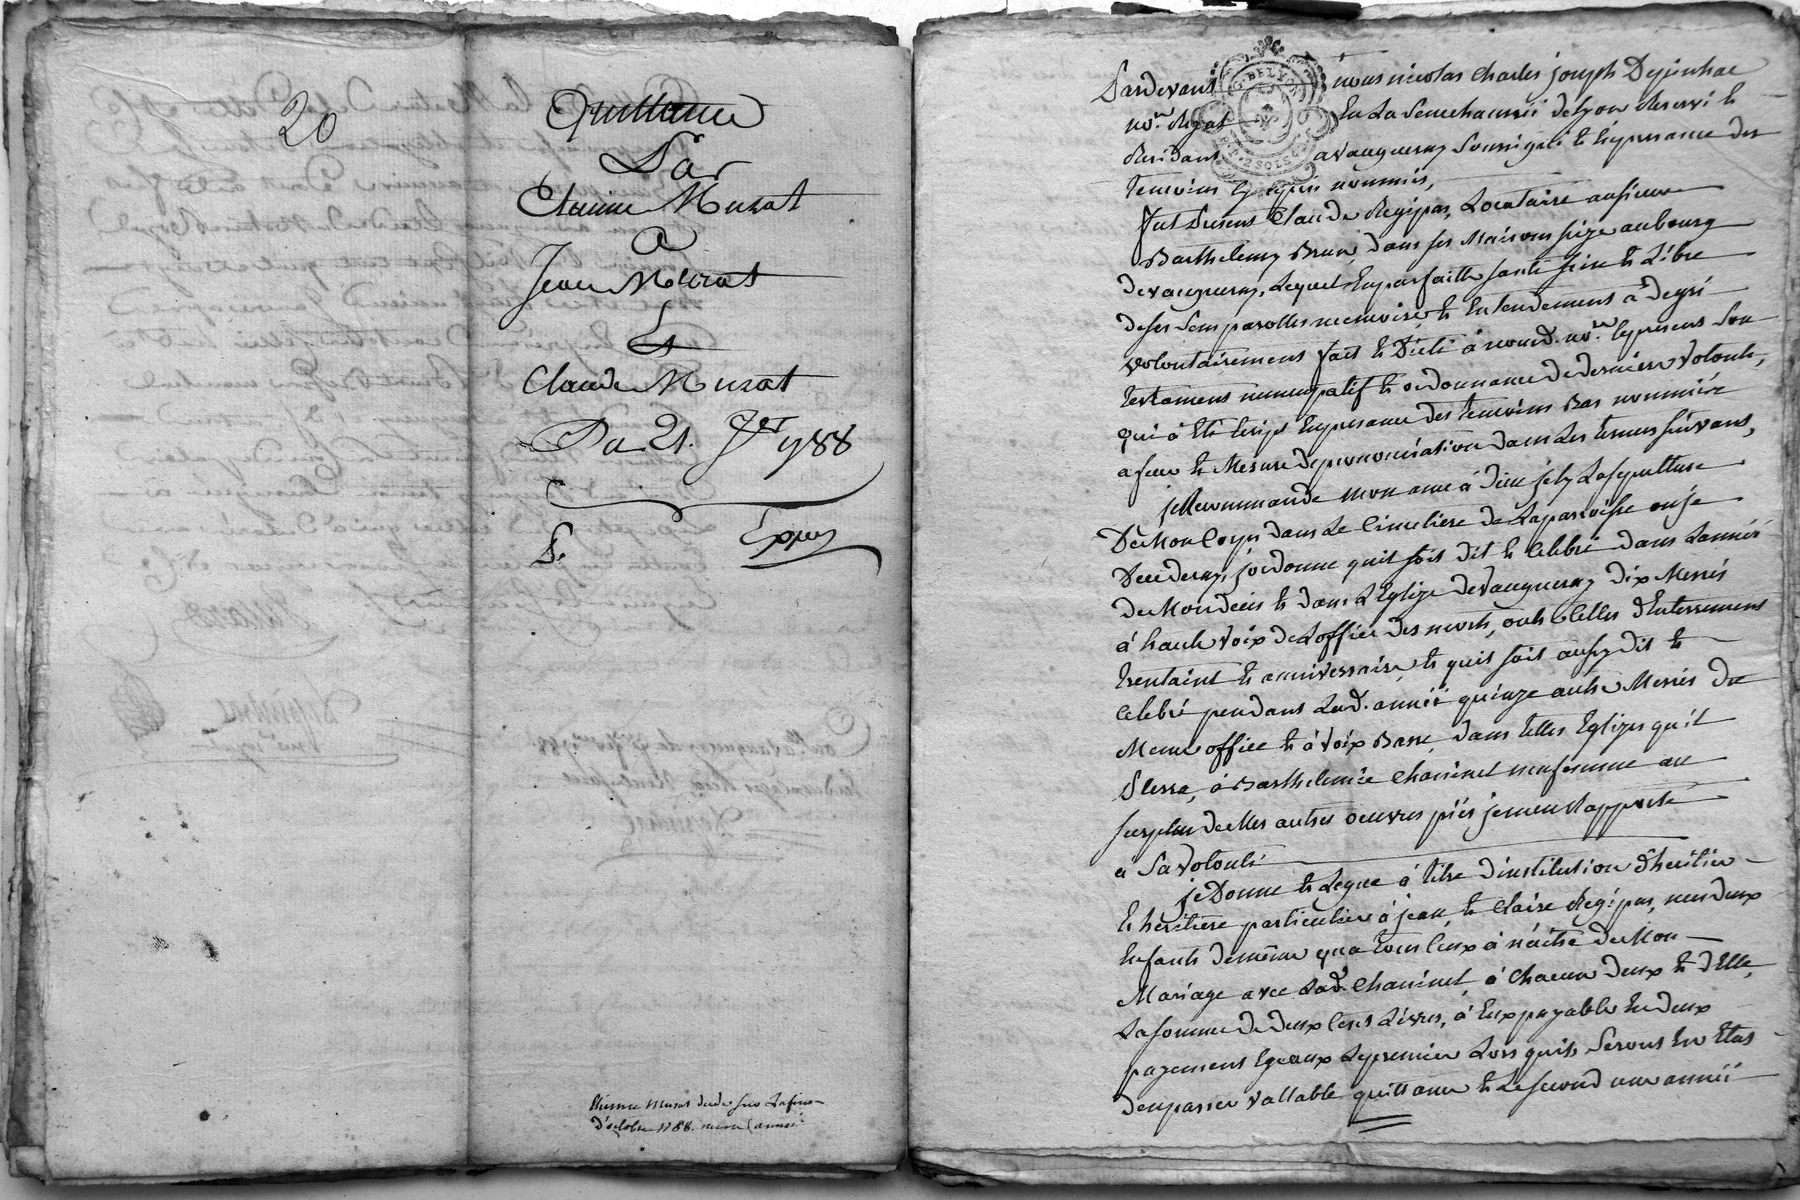 20
Quittance
Par
Etienne Murat
A
Jean Murat
Et
Claude Murat
Du 21. 7.er 1788
Exp.ez
Etienne Murat decede sur la fin
d'octobre 1788. meme annee
Pardevant nous nicolas charles joseph Depinhac
no.re Royal En La Senechaussée de Lyon Reservé et
Residant a vaugneray Soussigné et En presence des
temoins cy apres nommés,
fut Present Claude Regipas, Locataire au sieur
Barthelemy Brun, dans ses Maisons size au bourg
de vaugneray, Lequel En parfaitte santé sain et Libre
de ses sens parolles memoire, et Entendement à de gré
volontairement fait et Dicté à nousd. no.re le present Son
testament nuncupatif et ordonnance de derniere volonté,
qui à Eté Ecript En presence des temoins Bas nommés
a feur et Mesure de prononciation dans Les termes suivans,
je Recommande mon ame à Dieu, j'ely La sepulture
De Mon Corps dans Le Cimetiere de La parroisse ou je
Decederay, j'ordonne quil soit dit et Celebré dans L'année
de Mon deces et dans L'Eglize de Vaugneray dix Messes
à haute voix de L'office des morts, outre Celles d'Enterrement
trentaint et anniversaire, et quil soit aussy dit et
Celebré pendant Lad. année quinze autre Messes du
Meme office et à Voix Basse, dans telles Eglizes quil
Plerra, à Barthelemie Chaninet ma femme au
surplus de Mes autres oeuvres pies je m'en Rapporte
a Sa volonté
je Donne et Legue à titre d'institution d'heritier
et heritiere particuliere à jean, et Claire Regipas, mes deux
Enfants de même qu'a tous Ceux à naitre de Mon
Mariage avec Lad. Chaninet, à Chacun deux et d'Elle
La somme de deux Cens Livres, à Eux payable En deux
payemens Egaux Le premier Lors quils Seront En Etat
d'en passer vallable quittance et Le second une année